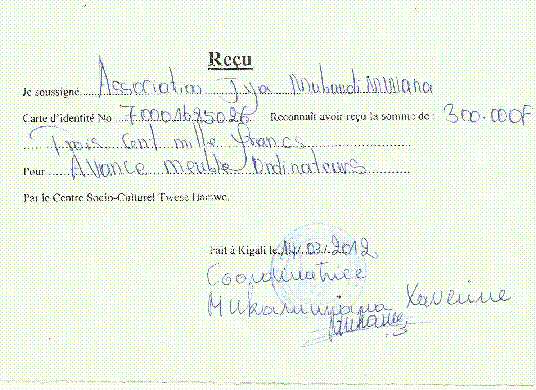 Reçu
Je soussigné Association Jya Mubandi MWana
Carte d'identité No 70001625026 Reconnaît avoir reçu la somme de : 300.000F
Trois cent mille francs
Pour Avance meuble Ordinateurs
Par le Centre Socio-Culturel Twese Hamwe.
Fait à Kigali le 14/.03/.2012
Coordinatrice
Mukarurinjana Xaverine